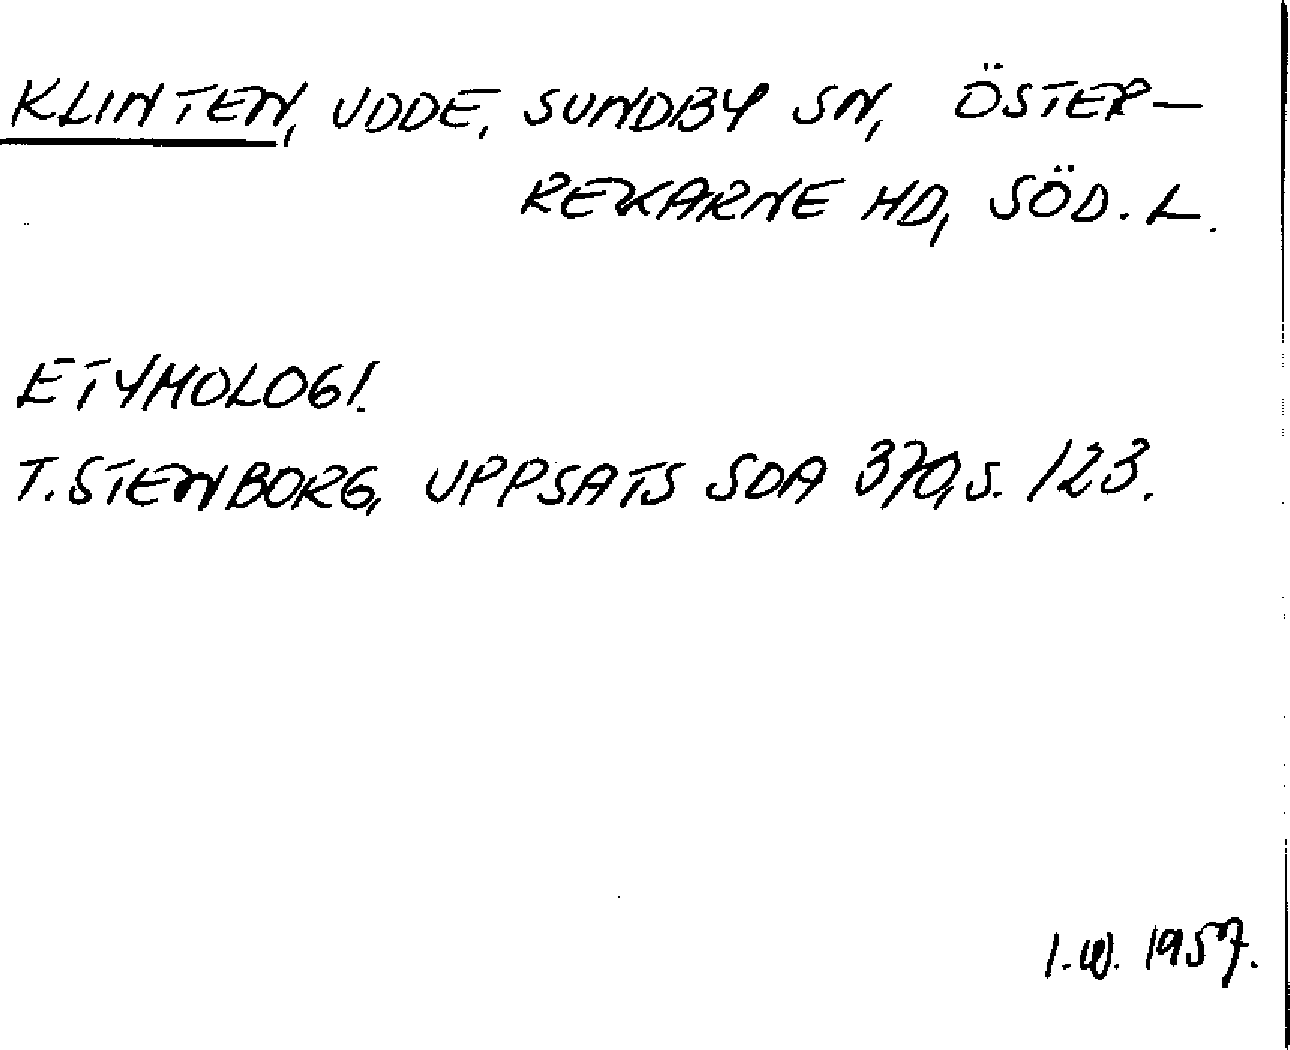 KLINTEN, UDDE, SUNDBY SN, ÖSTER-
REKARNE HD, SÖD. L.
ETYMOLOGI.
T. STENBORG, UPPSATS SDA 370, S. 123.
1957.